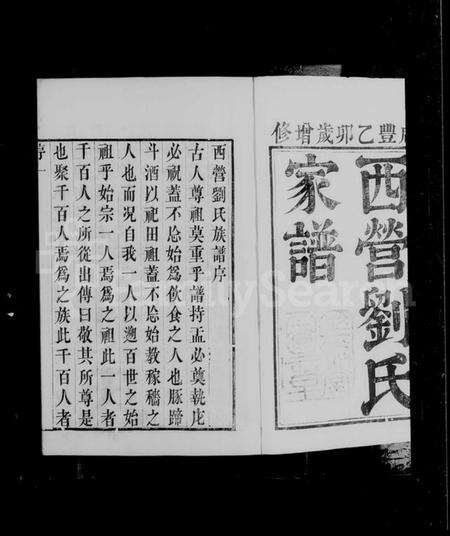 咸豐乙卯歲增修
西營劉氏
家譜
西營劉氏族譜序
古人尊祖莫重乎譜持盂必奠執庀
必祝蓋不忘始為飲食之人也豚蹄
斗酒以祀田祖蓋不忘始教稼穡之
人也而况自我一人以遡百世之始
祖乎始宗一人焉為之祖此一人者
千百人之所從出傳曰敬其所尊是
也聚千百人焉為之族此千百人者
FamilySearch